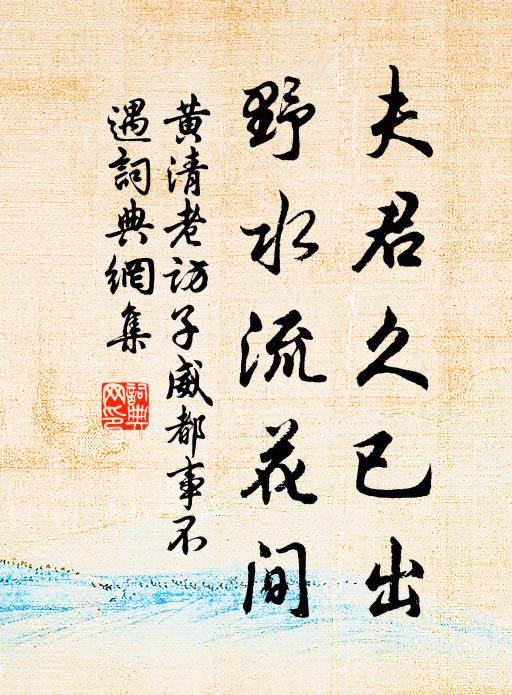 夫君久已出
野水流花间
黄清老訪子威都事不
遇詞典網集
詞典
网印